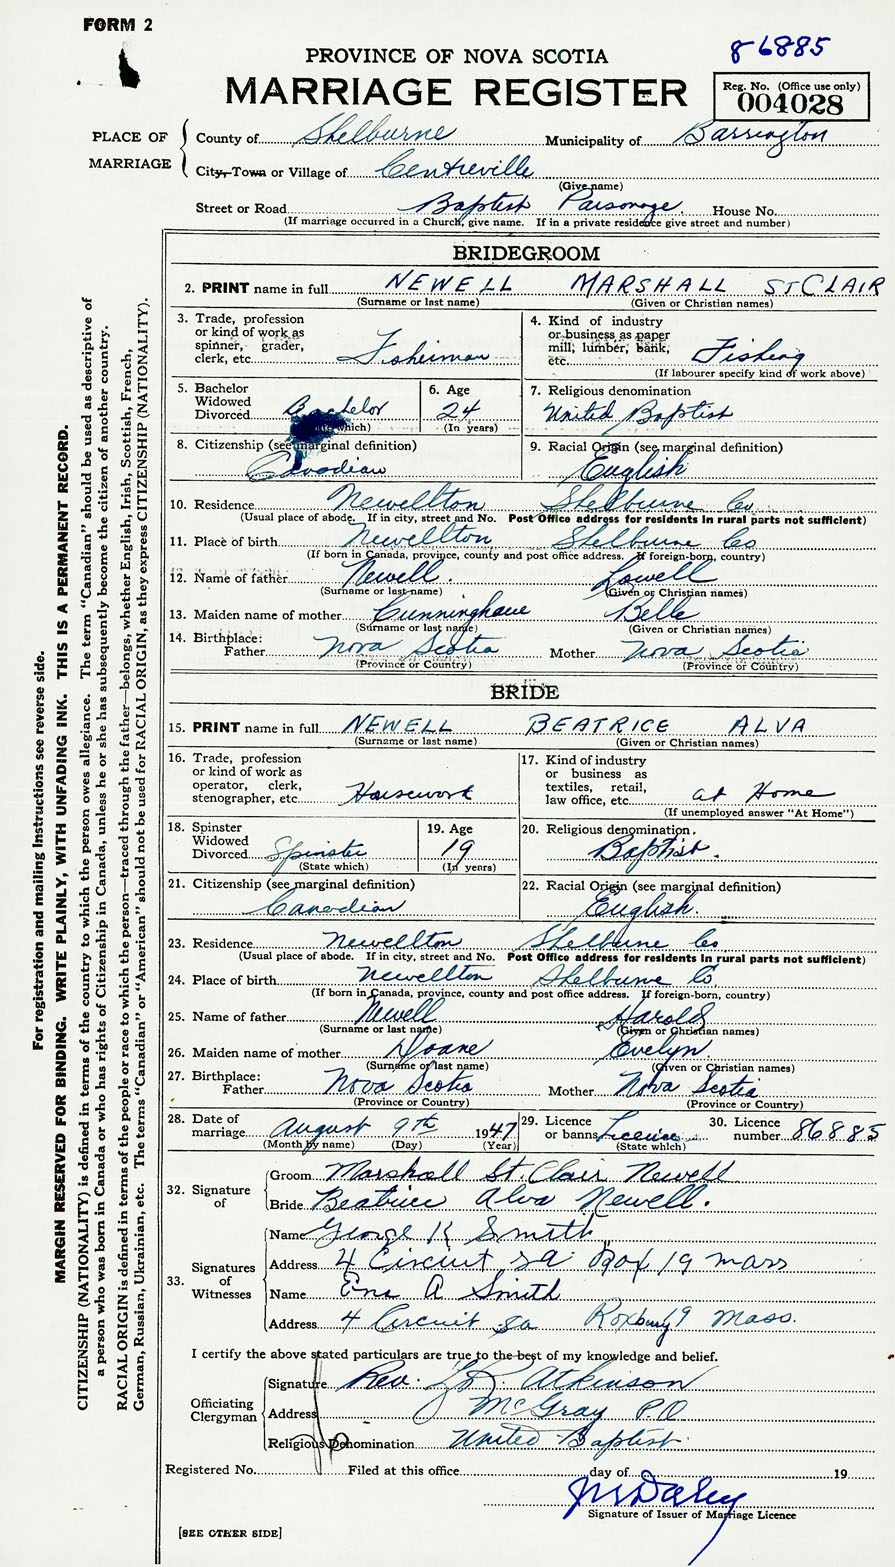 FORM 2
86885
PROVINCE OF NOVA SCOTIA
MARRIAGE REGISTER
Reg. No. (Office use only)
004028
PLACE OF MARRIAGE
County of Shelburne Municipality of Barrington
City, Town or Village of Centreville
(Give name)
Street or Road Baptist Parsonage. House No.
(If marriage occurred in a Church, give name. If in a private residence give street and number)
BRIDEGROOM
2. PRINT name in full NEWELL MARSHALL ST CLAIR
(Surname or last name) (Given or Christian names)
3. Trade, profession or kind of work as spinner, grader, clerk, etc. Fisherman
4. Kind of industry or business as paper mill, lumber, bank, etc. Fishing
(If labourer specify kind of work above)
5. Bachelor Widowed Divorced Bachelor
6. Age 24
(In years)
7. Religious denomination
United Baptist
8. Citizenship (see marginal definition)
Canadian
9. Racial Origin (see marginal definition)
English
10. Residence Newellton Shelburne Co
(Usual place of abode. If in city, street and No. Post Office address for residents in rural parts not sufficient)
11. Place of birth Newellton Shelburne Co
(If born in Canada, province, county and post office address. If foreign-born, country)
12. Name of father Newell. Lowell
(Surname or last name) (Given or Christian names)
13. Maiden name of mother Cunninghame Belle
(Surname or last name) (Given or Christian names)
14. Birthplace:
Father Nova Scotia Mother Nova Scotia
(Province or Country) (Province or Country)
BRIDE
15. PRINT name in full NEWELL BEATRICE ALVA
(Surname or last name) (Given or Christian names)
16. Trade, profession or kind of work as operator, clerk, stenographer, etc. Housework
17. Kind of industry or business as textiles, retail, law office, etc. at Home
(If unemployed answer "At Home")
18. Spinster Widowed Divorced Spinster
(State which)
19. Age
19
(In years)
20. Religious denomination.
Baptist.
21. Citizenship (see marginal definition)
Canadian
22. Racial Origin (see marginal definition)
English.
23. Residence Newellton Shelburne Co
(Usual place of abode. If in city, street and No. Post Office address for residents in rural parts not sufficient)
24. Place of birth Newellton Shelburne Co
(If born in Canada, province, county and post office address. If foreign-born, country)
25. Name of father Newell Harold
(Surname or last name) (Given or Christian names)
26. Maiden name of mother Doane Evelyn
(Surname or last name) (Given or Christian names)
27. Birthplace:
Father Nova Scotia Mother Nova Scotia
(Province or Country) (Province or Country)
28. Date of marriage August 9th 1947
(Month by name) (Day) (Year)
29. Licence or banns Licence
(State which)
30. Licence number 86885
32. Signature of
Groom Marshall St. Clair Newell
Bride Beatrice Alva Newell.
33. Signatures of Witnesses
Name George K Smith
Address 4 Circuit sq Rox 19 mass
Name Ena A Smith
Address 4 Circuit sq Roxbury 19 Mass.
I certify the above stated particulars are true to the best of my knowledge and belief.
Officiating Clergyman
Signature Rev. Atkinson
Address McGray P.O
Religious Denomination United Baptist
Registered No. Filed at this office day of 19
Signature of Issuer of Marriage Licence
[SEE OTHER SIDE]
For registration and mailing instructions see reverse side.
MARGIN RESERVED FOR BINDING. WRITE PLAINLY, WITH UNFADING INK. THIS IS A PERMANENT RECORD.
CITIZENSHIP (NATIONALITY) is defined in terms of the country to which the person owes allegiance. The term "Canadian" should be used as descriptive of
a person who was born in Canada or who has rights of Citizenship in Canada, unless he or she has subsequently become the citizen of another country.
RACIAL ORIGIN is defined in terms of the people or race to which the person—traced through the father—belongs, whether English, Irish, Scottish, French,
German, Russian, Ukrainian, etc. The terms "Canadian" or "American" should not be used for RACIAL ORIGIN, as they express CITIZENSHIP (NATIONALITY).